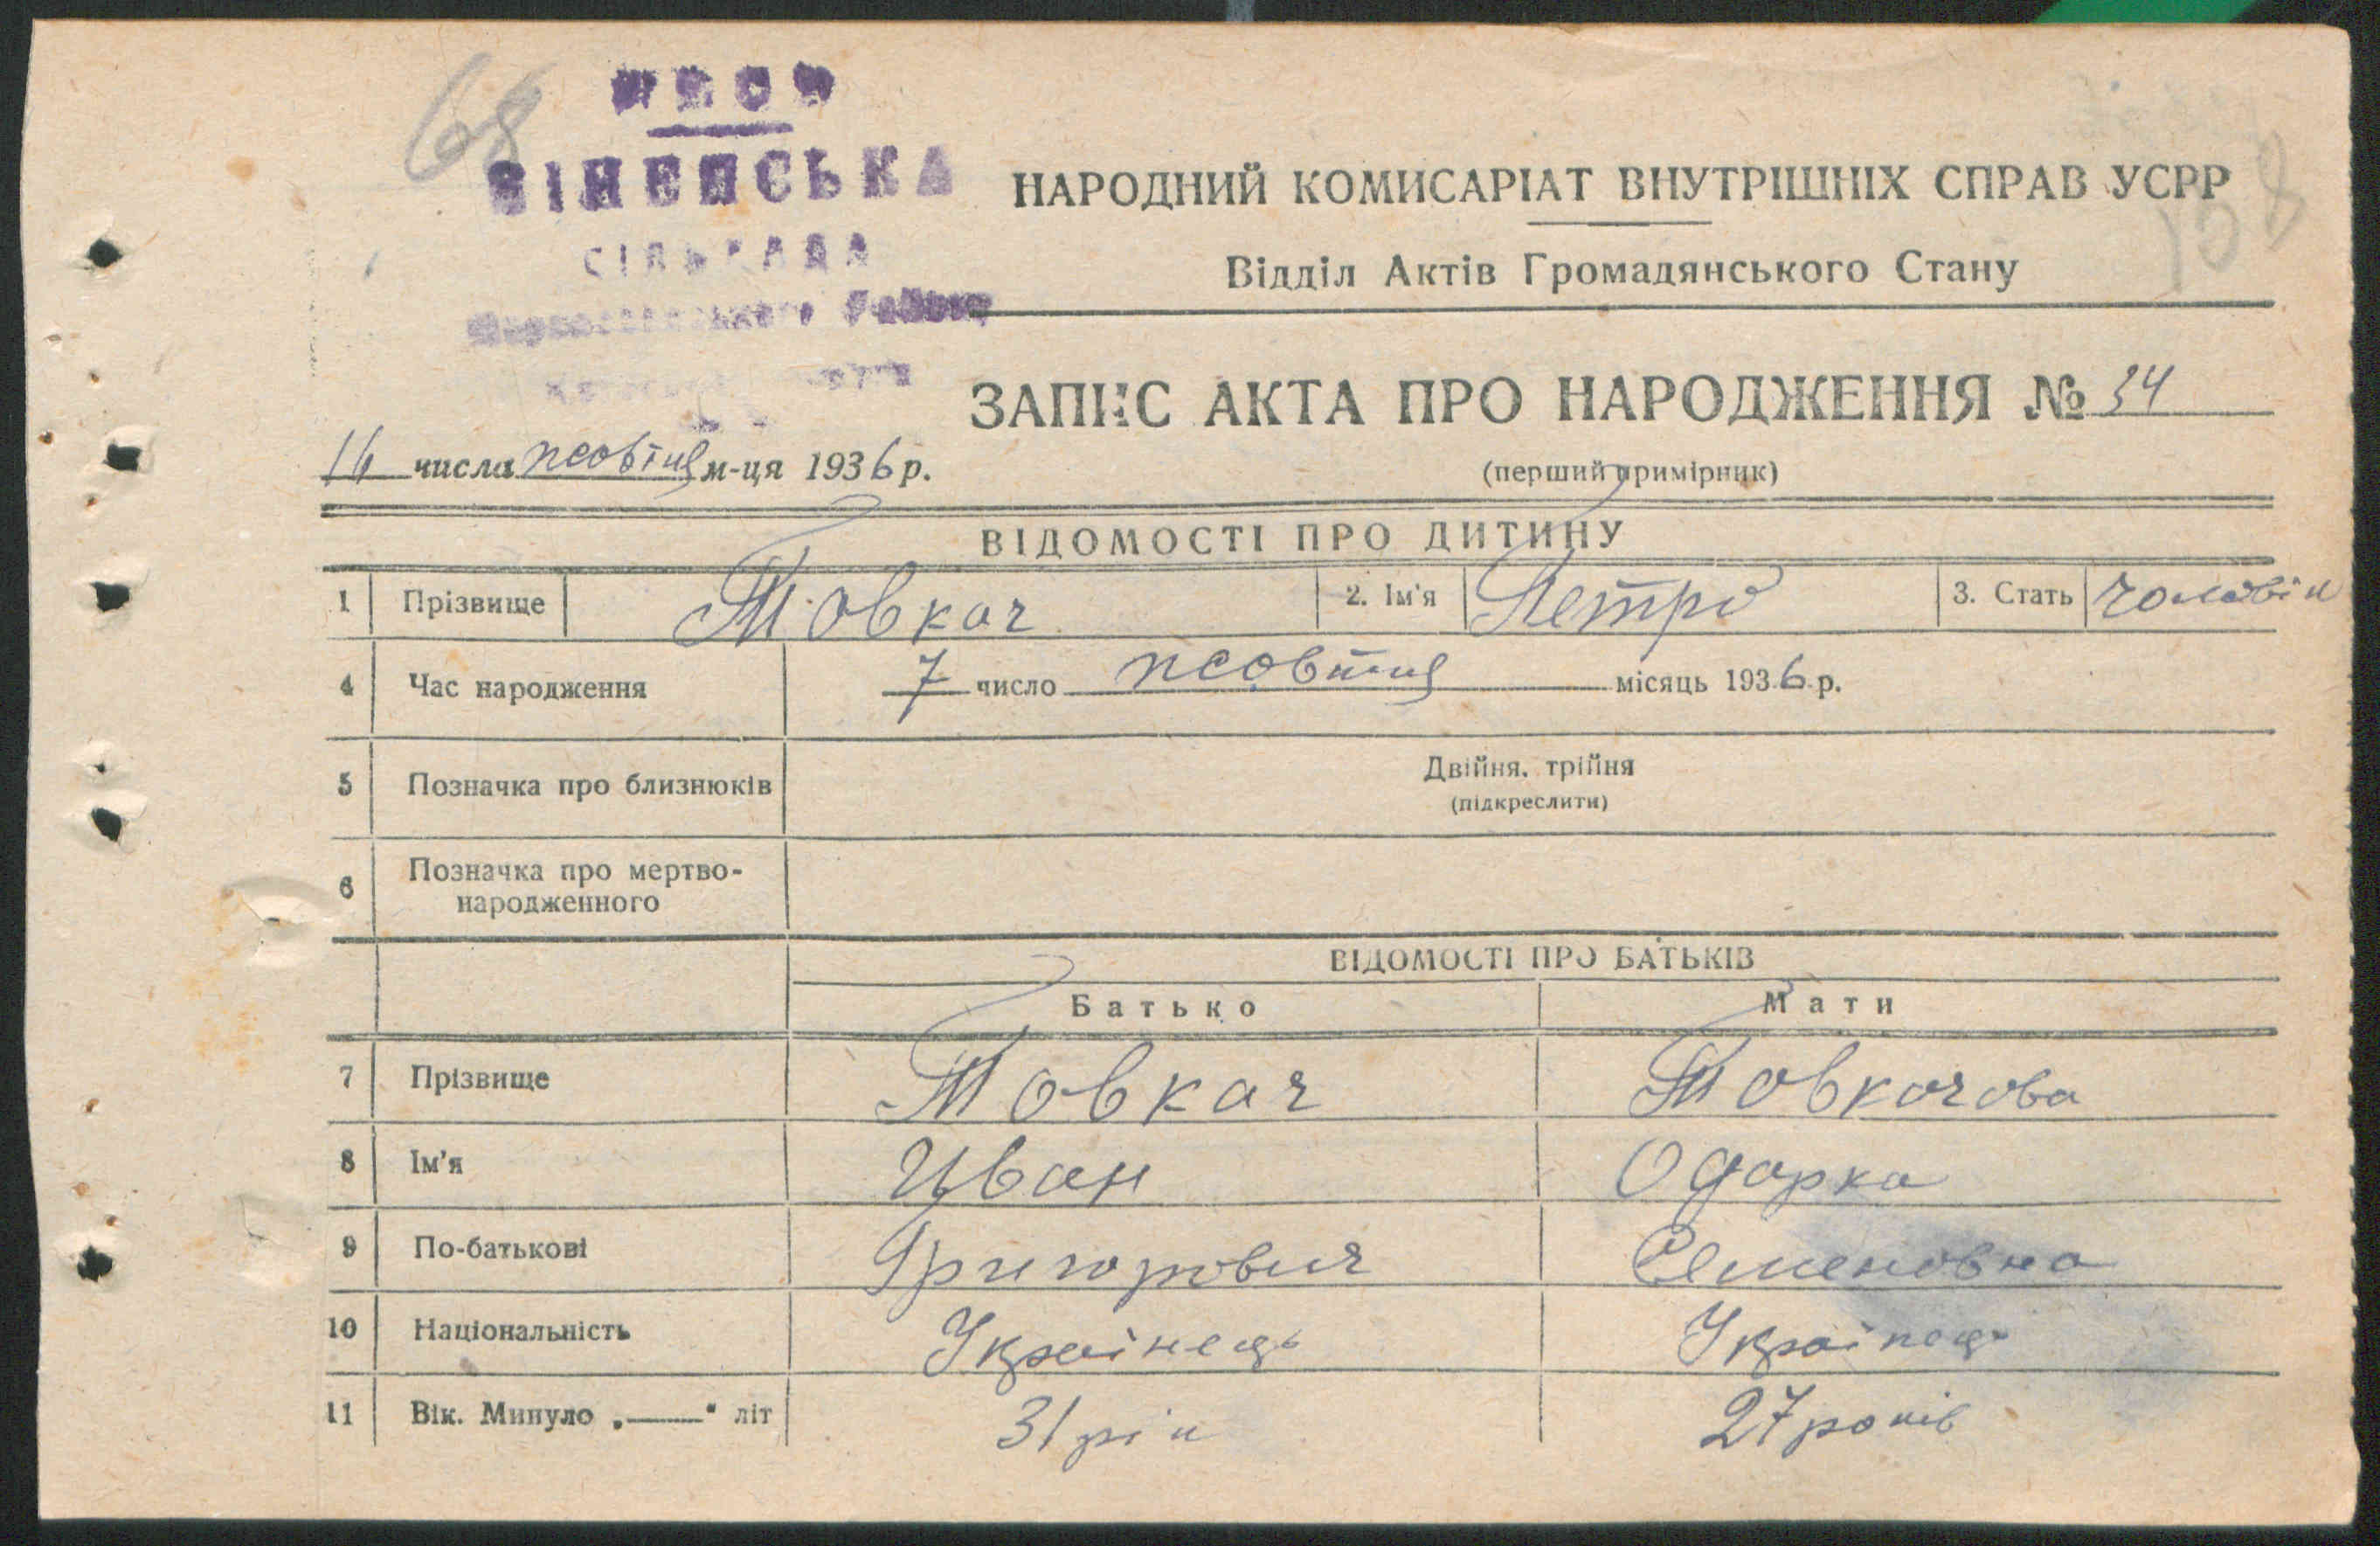 68
СІЛЬРАДА
Району
НАРОДНИЙ КОМИСАРІАТ ВНУТРІШНІХ СПРАВ УСРР
158
Відділ Актів Громадянського Стану
ЗАПИС АКТА ПРО НАРОДЖЕННЯ № 34
числа жовтня м-ця 1936 р.
(перший примірник)
ВІДОМОСТІ ПРО ДИТИНУ
1 Прізвище Товкач 2. Ім'я Петро 3. Стать чоловік
4 Час народження 7 число жовтня місяць 1936 р.
5 Позначка про близнюків Двійня, трійня
(підкреслити)
6 Позначка про мертво-
народженного
ВІДОМОСТІ ПРО БАТЬКІВ
Батько Мати
7 Прізвище Товкач Товкачова
8 Ім'я Иван Одарка
9 По-батькові Григорович Семеновна
10 Національність Українець Українець
11 Вік. Минуло „——“ літ 31 рік 27 років